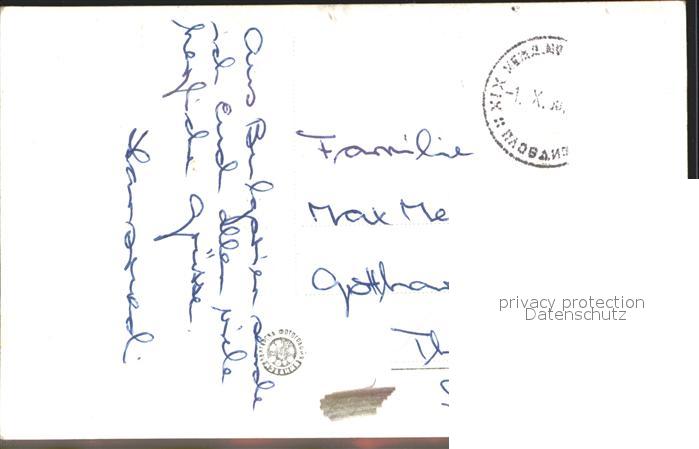 Aus Bulgarien sende
ich Euch allen viele
herzliche Grüsse.
Familie
Max Me
Gotthar
XIX
1. X.
privacy protection
Datenschutz